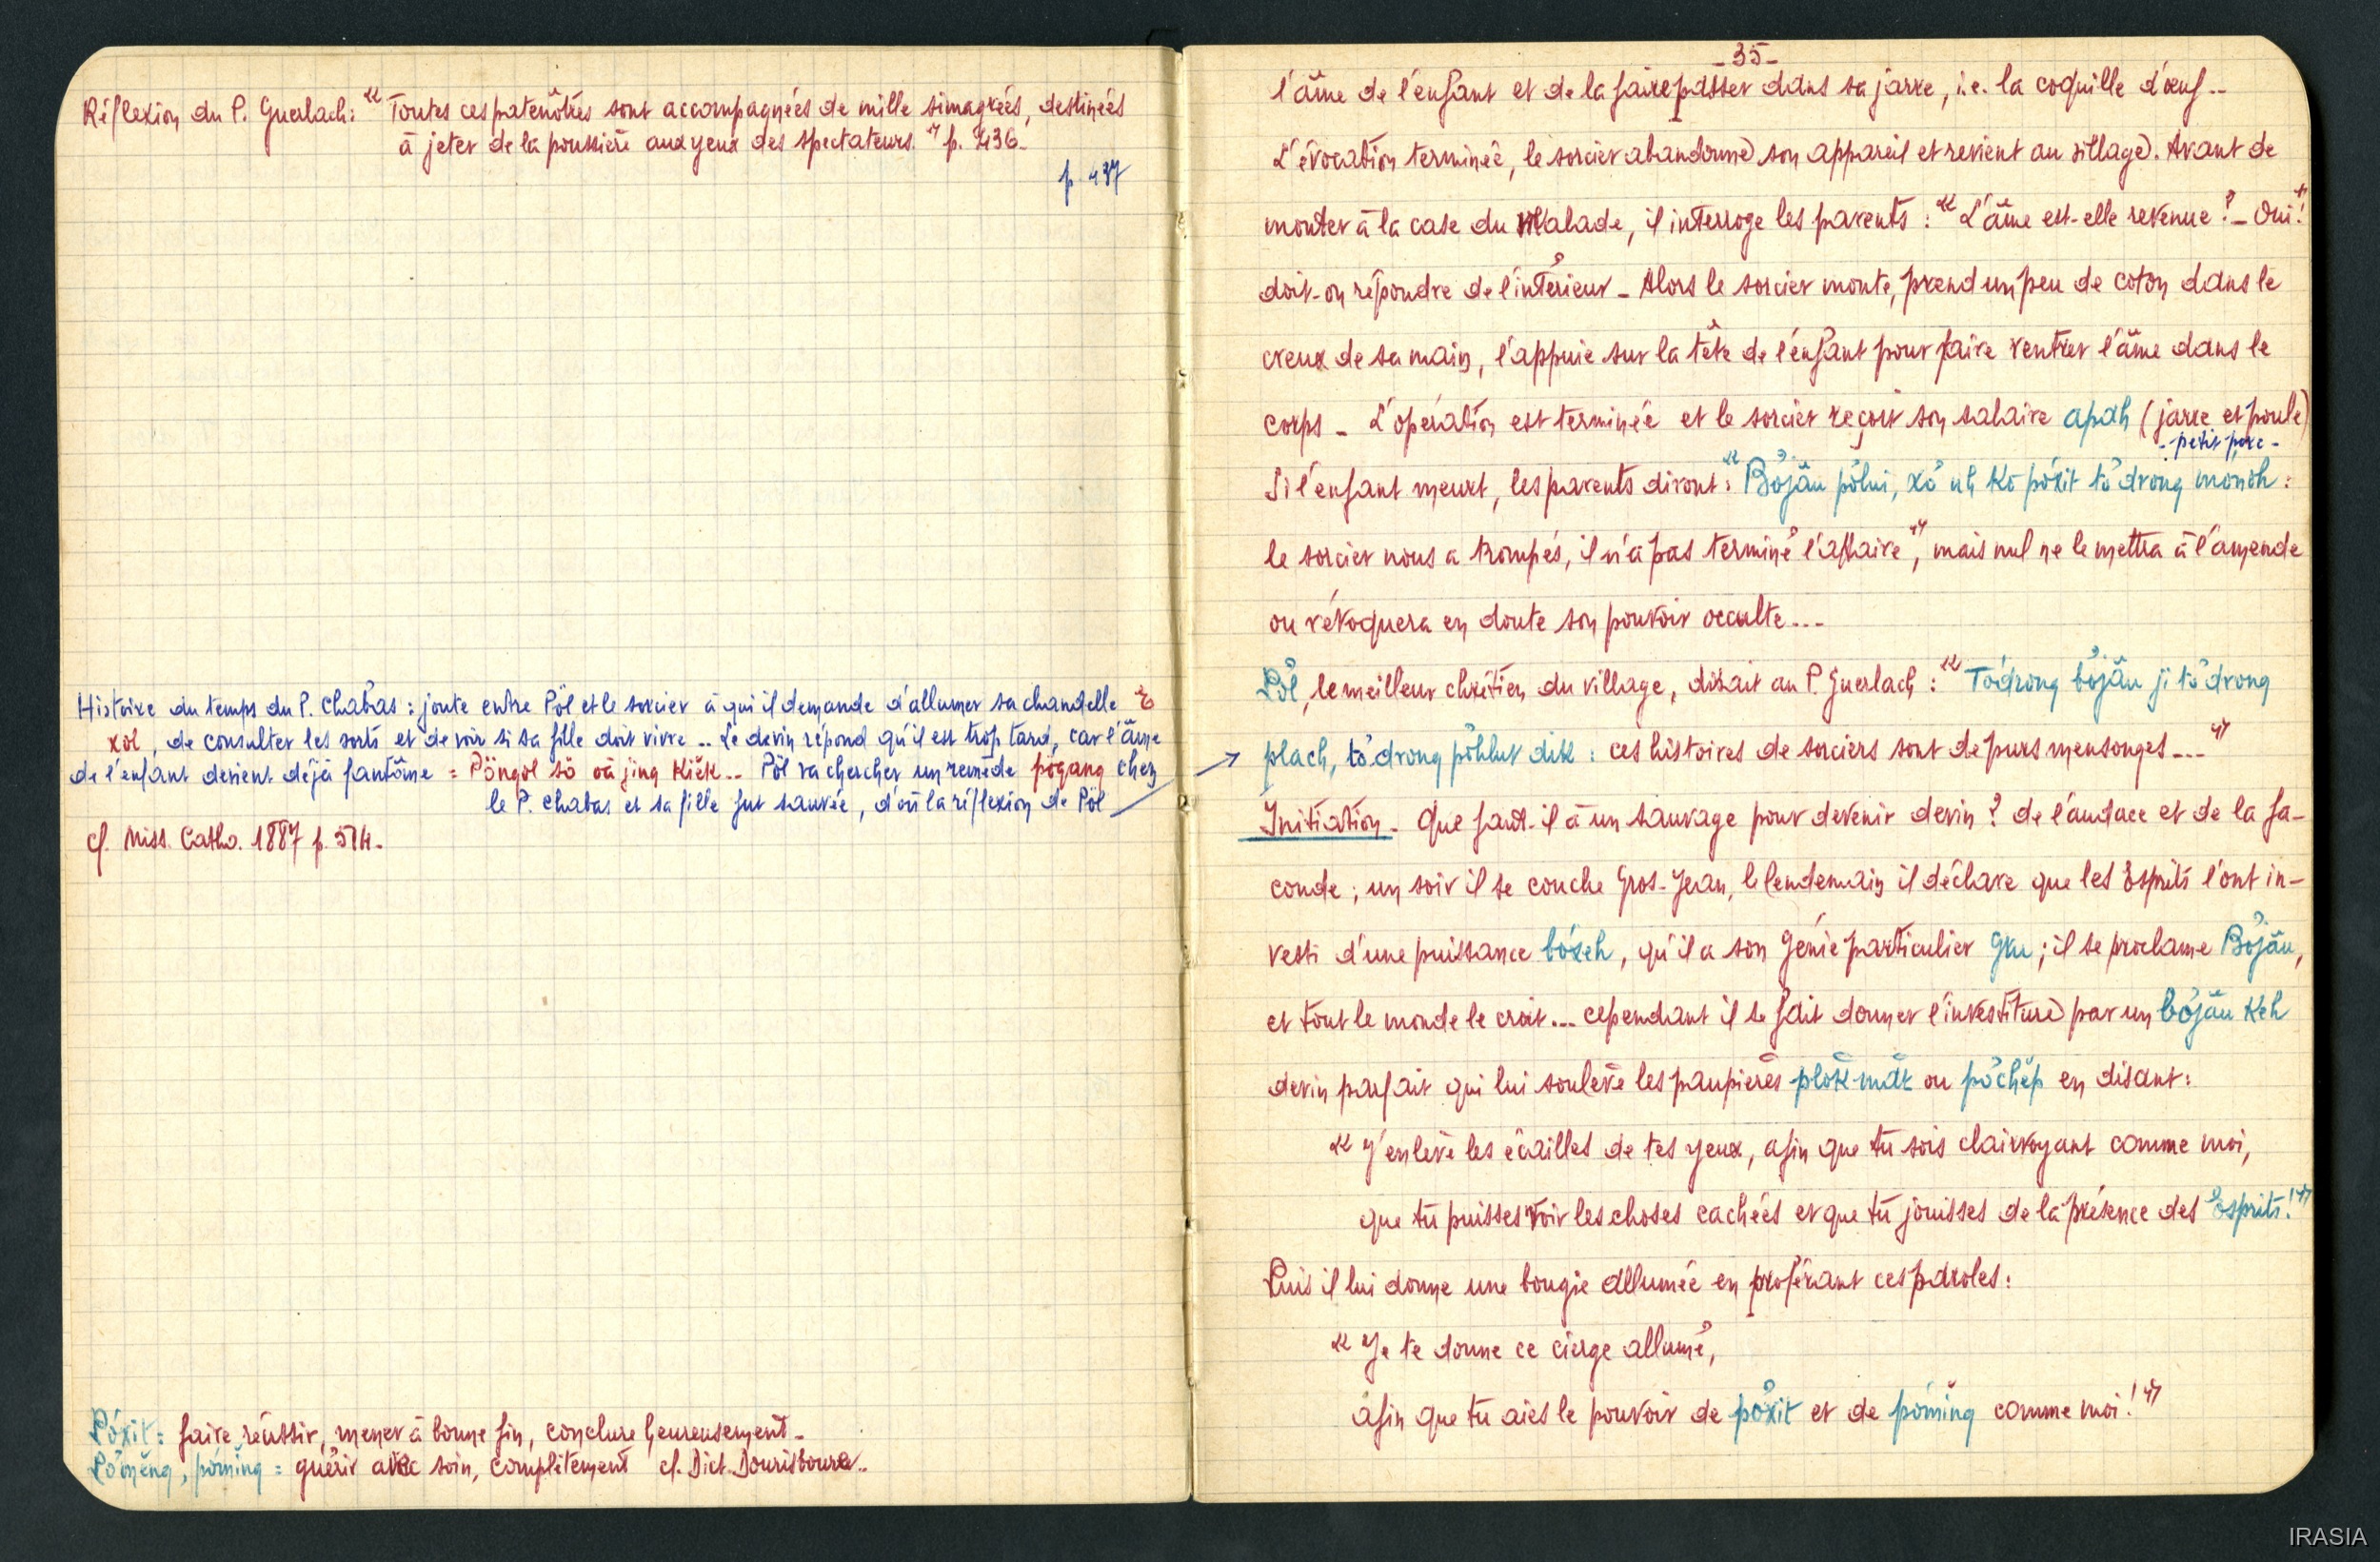 Réflexion du P. Guerlach : « Toutes ces patenôtres sont accompagnées de mille simagrées, destinées
à jeter de la poussière aux yeux des spectateurs. » p. 436.
p. 437
Histoire du temps du P. Chabas : joute entre Pôl et le sorcier à qui il demande d'allumer sa chandelle
xol, de consulter les sorts et de voir si sa fille doit vivre .. Le devin répond qu'il est trop tard, car l'âme
de l'enfant devient déjà fantôme = Pöngöl sö oä jing Kiĕk .. Pôl va chercher un remède pögang chez
le P. Chabas et sa fille fut sauvée, d'où la réflexion de Pôl
cf. Miss. Catho. 1887 p. 514.
Pöxit : faire réussir, mener à bonne fin, conclure heureusement.
Pömĕng, pömĭng = guérir avec soin, complètement cf. Dict. Dourisboure ..
- 35 -
l'âme de l'enfant et de la faire passer dans sa jarre, i.e. la coquille d'œuf ..
L'évocation terminée, le sorcier abandonne son appareil et revient au village. Avant de
monter à la case du Malade, il interroge les parents : « L'âme est-elle revenue ? _ Oui ! »
doit-on répondre de l'intérieur _ Alors le sorcier monte, prend un peu de coton dans le
creux de sa main, l'appuie sur la tête de l'enfant pour faire rentrer l'âme dans le
corps _ L'opération est terminée et le sorcier reçoit son salaire apah (jarre et poule)
- petit porc -
Si l'enfant meurt, les parents diront : « Böjâu pölui, xö uh kö pöxit tödrong mönöh :
le sorcier nous a trompés, il n'a pas terminé l'affaire », mais nul ne le mettra à l'amende
ou révoquera en doute son pouvoir occulte ...
Pôl, le meilleur chrétien du village, disait au P. Guerlach : « Tödrong böjâu ji tödrong
plach, tödrong pöhlut dik : ces histoires de sorciers sont de purs mensonges ... »
Initiation _ Que faut-il à un sauvage pour devenir devin ? de l'audace et de la fa-
conde ; un soir il se couche Gros-Jean, le lendemain il déclare que les Esprits l'ont in-
vesti d'une puissance böxeh, qu'il a son Génie particulier Gru ; il se proclame Böjâu,
et tout le monde le croit ... cependant il se fait donner l'investiture par un böjâu Keh
devin parfait qui lui soulève les paupières plök măt ou pöchĕp en disant :
« J'enlève les écailles de tes yeux, afin que tu sois clairvoyant comme moi,
que tu puisses voir les choses cachées et que tu jouisses de la présence des Esprits ! »
Puis il lui donne une bougie allumée en proférant ces paroles :
« Je te donne ce cierge allumé,
afin que tu aies le pouvoir de pöxit et de pömĭng comme moi ! »
IRASIA